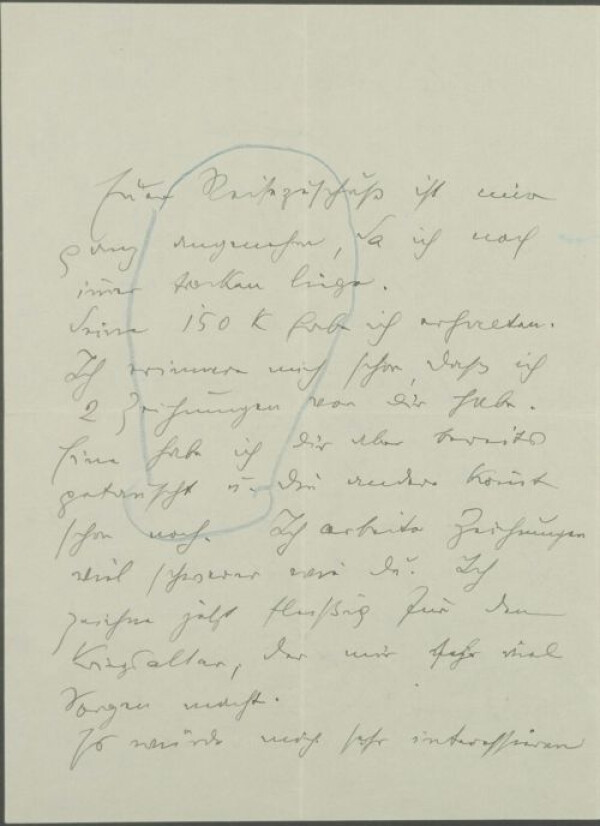 Euer Reisezuschuß ist mir
ganz angenehm, da ich noch
immer trocken liege.
Deine 150 K habe ich erhalten.
Ich erinnere mich schon, daß ich
2 Zeichnungen von dir habe.
Eine habe ich dir aber bereits
getauscht u. die andere kommt
schon noch. Ich arbeite Zeichnungen
viel schwerer wie du. Ich
zeichne jetzt fleißig für den
Kriegsaltar, der mir sehr viel
Sorgen macht.
Es würde mich sehr interessieren